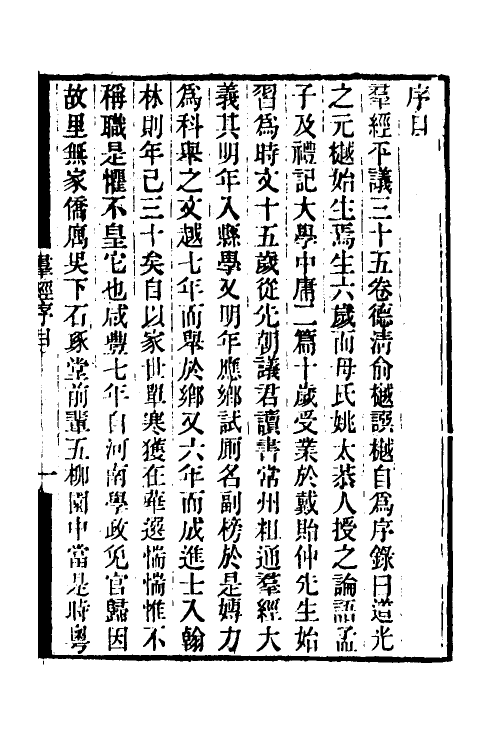 序目
羣經平議三十五卷德清俞樾譔樾自爲序錄曰道光
之元樾始生焉生六歲而母氏姚太恭人授之論語孟
子及禮記大學中庸二篇十歲受業於戴貽仲先生始
習爲時文十五歲從先朝議君讀書常州粗通羣經大
義其明年入縣學又明年應鄉試厠名副榜於是專力
爲科舉之文越七年而舉於鄉又六年而成進士入翰
林則年已三十矣自以家世單寒獲在華選惴惴惟不
稱職是懼不皇它也咸豐七年自河南學政免官歸因
故里無家僑寓吳下石琢堂前輩五柳園中當是時粵
羣經序目
一